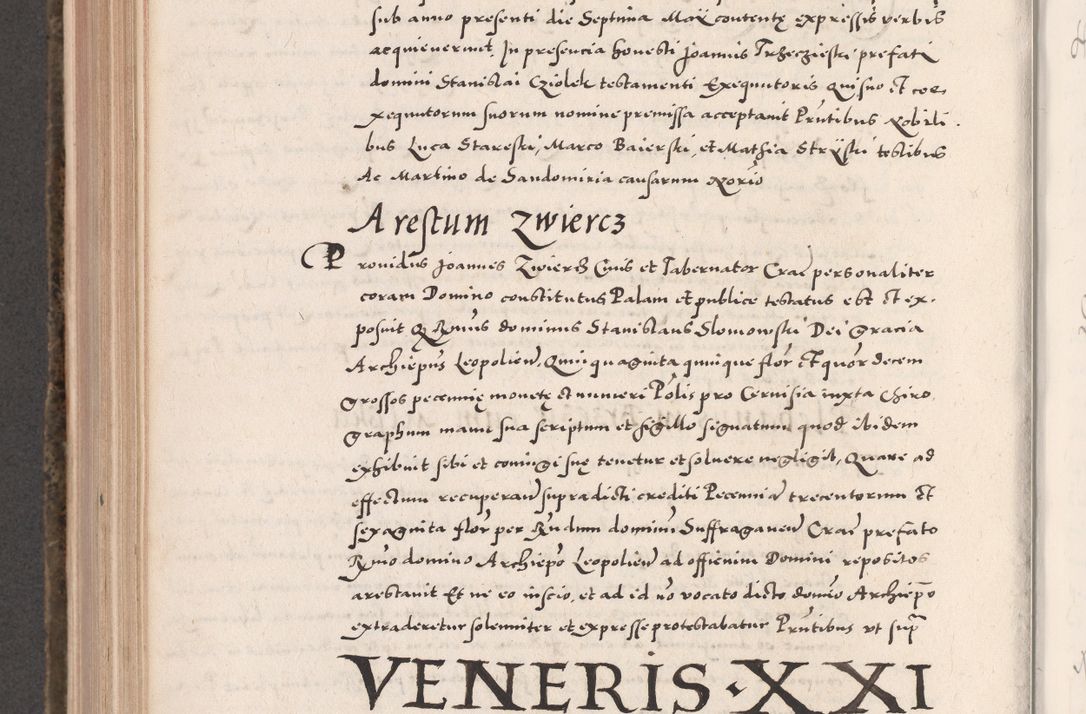 sub anno presenti die Septima Maÿ contentę expressis verbis
acquieverunt. In presencia honesti Joannis Trzeczieski prefati
domini Stanislai Cziolek testamenti Exequutoris Qui suo et coe-
xequutorum suorum nomine premissa acceptavit Pntibus Nobili-
bus Luca Stareski, Marco Baierski, et Mathia Strÿski testibus
Ac Martino de Sandomiria causarum Norio
Arestum Zwiercz
Providus Joannes Zwiercz Civis et Tabernator Crac personaliter
coram Domino constitutus Palam et publice testatus est et ex-
posuit Q Rmus dominus Stanislaus Slomowski Dei gracia
Archiepus Leopolien, Quinquaginta quinque flor et quor decem
grossos pecunię monetę et numeri Polis pro Cervisia iuxta Chiro
graphum manu sua scriptum et sigillo signatum quod ibidem
exhibuit sibi et coniugi suę tenetur et solvere negligit, Quare ad
effectum recuperan supradicti crediti Pecunia trecentorum et
sexaginta flor per Rndum dominum Suffraganeu Crac prefato
Rmo domino Archiepo Leopolien ad officium Domini repositos
arestavit Et ne eo inscio, et ad id no vocato dicto domino Archiepo
extraderetur solenniter et expresse protestabatur Pntibus ut supra
VENERIS · XXI